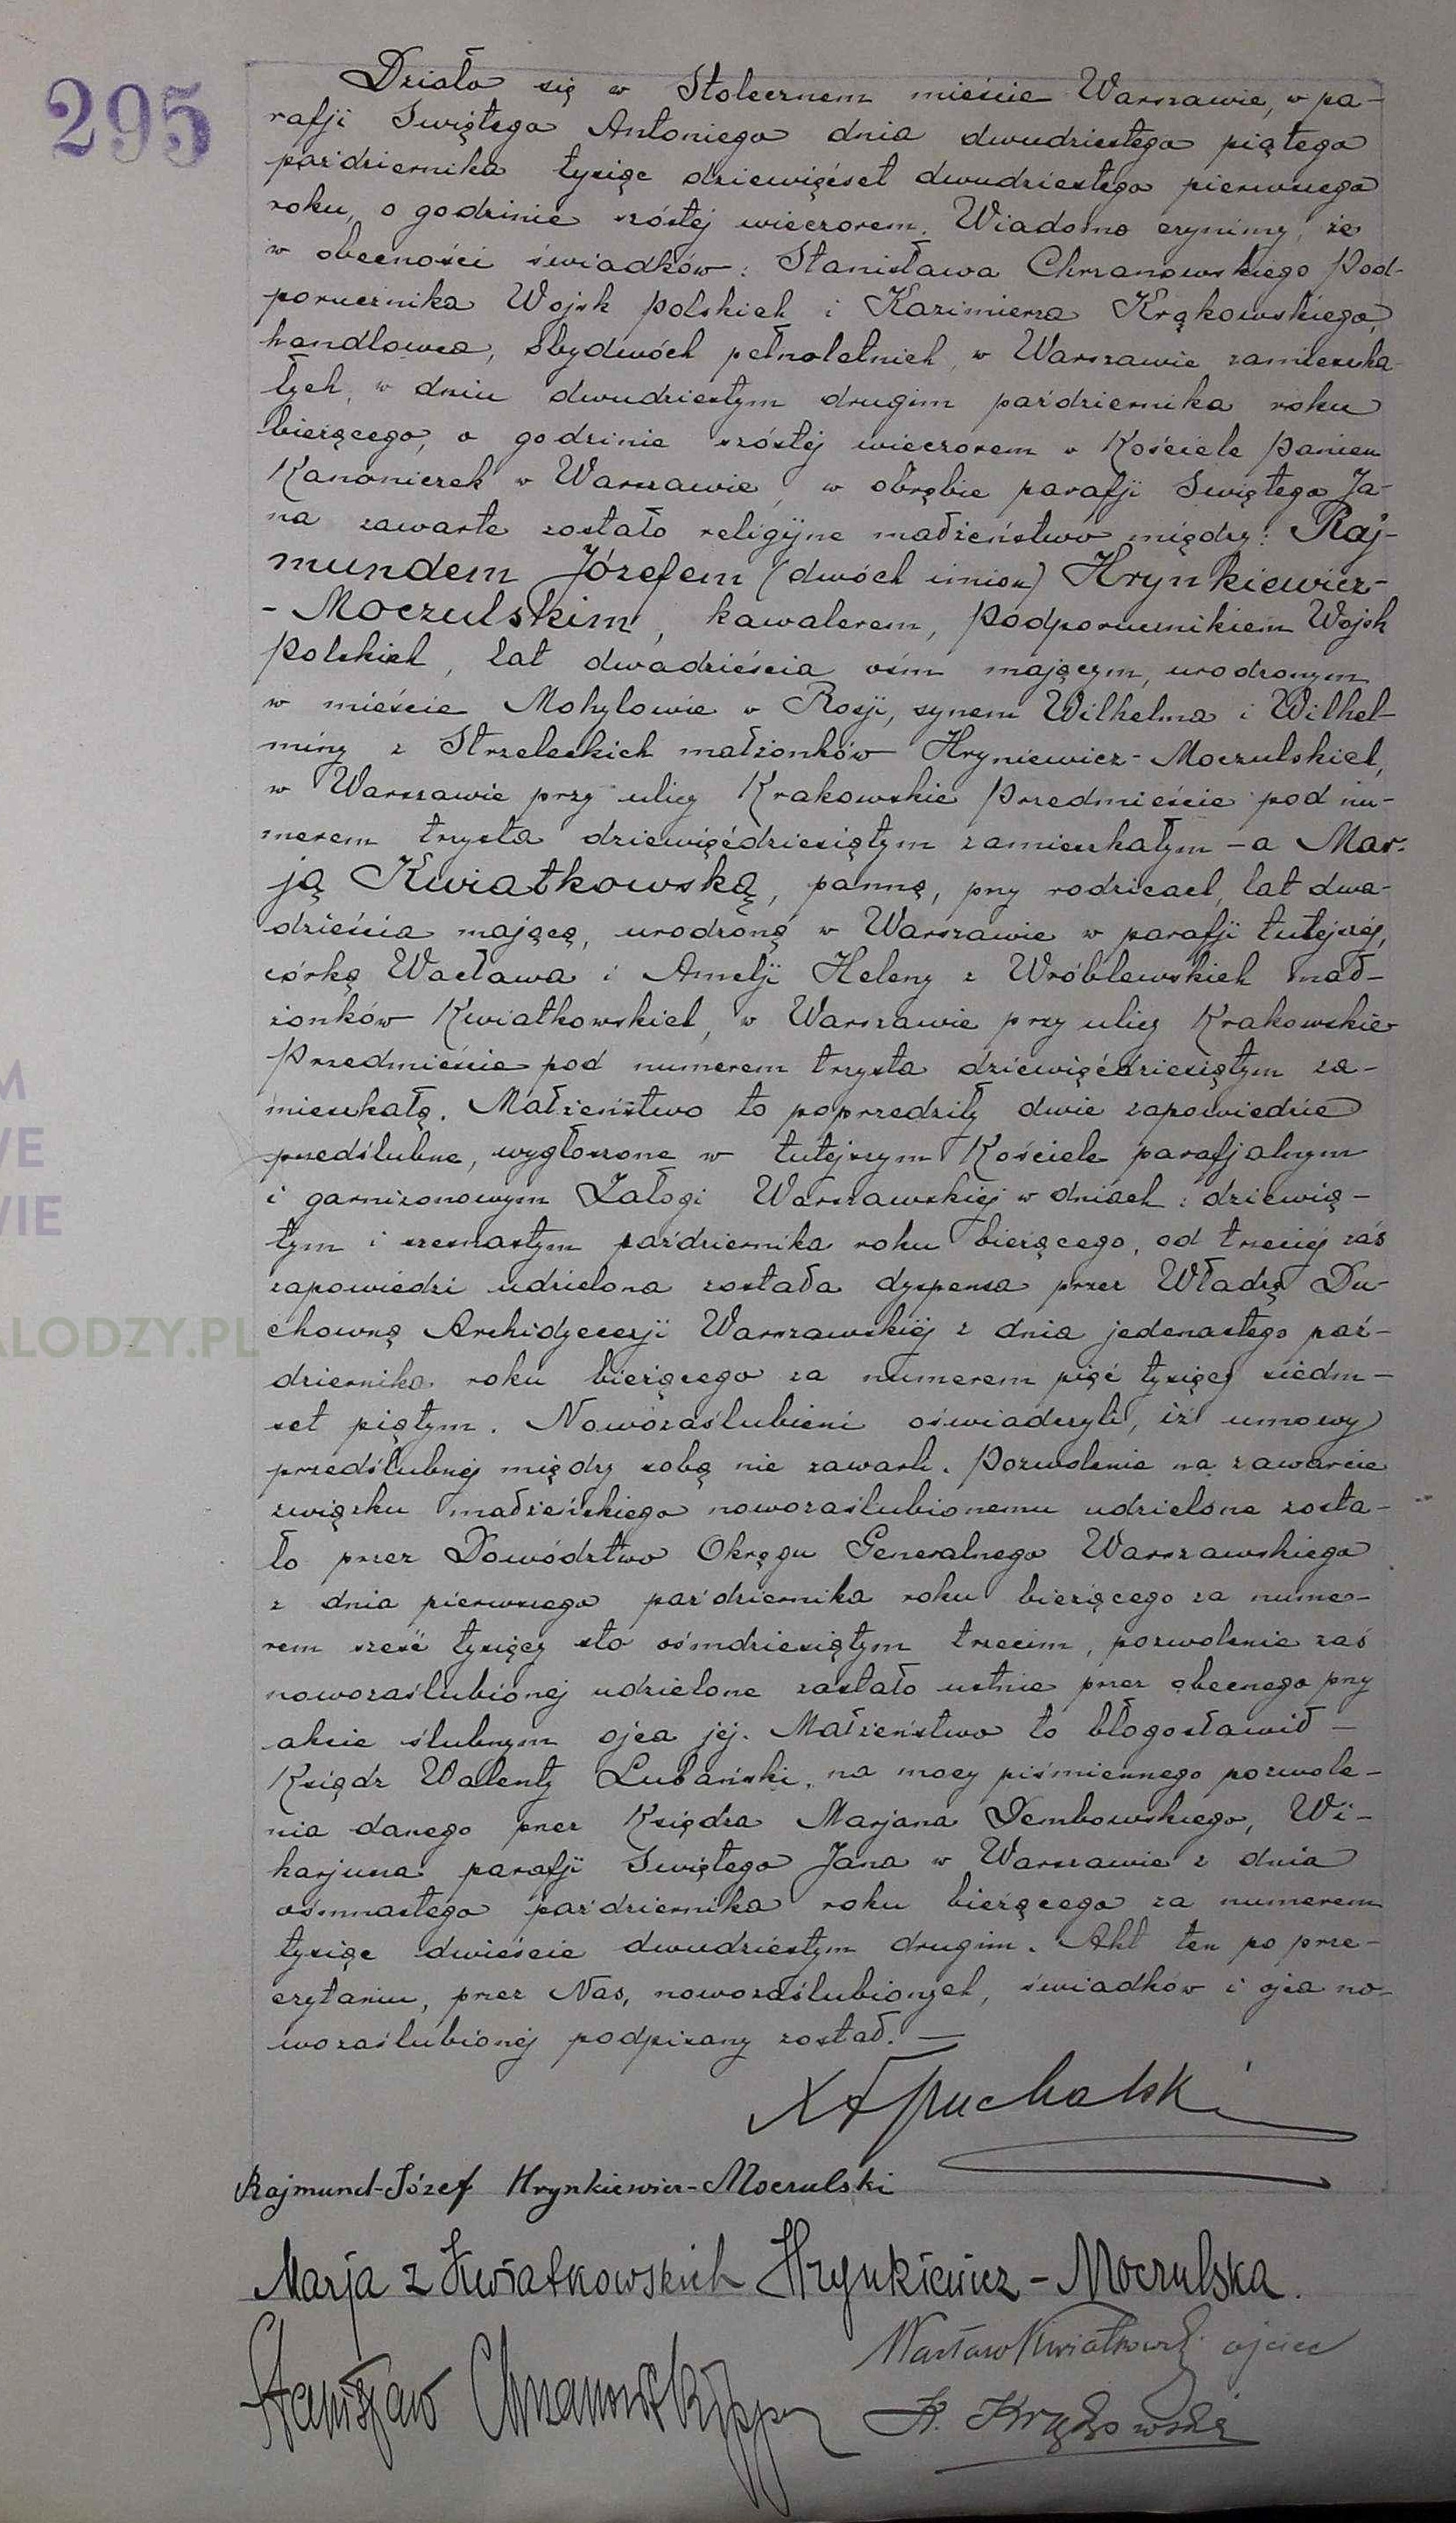 295
Działo się w Stołecznem mieście Warszawie, w pa-
rafji Świętego Antoniego dnia dwudziestego piątego
października tysiąc dziewięćset dwudziestego pierwszego
roku, o godzinie szóstej wieczorem. Wiadomo czynimy, że
w obecności świadków: Stanisława Chrzanowskiego Pod-
porucznika Wojsk Polskich i Kazimierza Krąkowskiego,
handlowca, obydwóch pełnoletnich, w Warszawie zamieszka-
łych, w dniu dwudziestym drugim października roku
bieżącego, o godzinie szóstej wieczorem w Kościele Panien
Kanoniczek w Warszawie, w obrębie parafji Świętego Ja-
na zawarte zostało religijne małżeństwo między: Raj-
mundem Józefem (dwóch imion) Hrynkiewicz-
- Moczulskim, kawalerem, Podporucznikiem Wojsk
Polskich, lat dwadzieścia ośm mającym, urodzonym
w mieście Mohylowie w Rosji, synem Wilhelma i Wilhel-
miny z Strzeleckich małżonków Hryniewicz-Moczulskich,
w Warszawie przy ulicy Krakowskie Przedmieście pod nu-
merem trzysta dziewięćdziesiątym zamieszkałym - a Mar-
ją Kwiatkowską, panną, przy rodzicach, lat dwa-
dzieścia mającą, urodzoną w Warszawie w parafji tutejszej,
córką Wacława i Amelji Heleny z Wróblewskich mał-
żonków Kwiatkowskich, w Warszawie przy ulicy Krakowskie
Przedmieście pod numerem trzysta dziewięćdziesiątym za-
mieszkałą. Małżeństwo to poprzedziły dwie zapowiedzie
przedślubne, wygłoszone w tutejszym Kościele parafjalnym
i garnizonowym Załogi Warszawskiej w dniach: dziewią-
tym i szesnastym października roku bieżącego, od trzeciej zaś
zapowiedzi udzielona została dyspensa przez Władzę Du-
chowną Archidyecezji Warszawskiej z dnia jedenastego paź-
dziernika roku bieżącego za numerem pięć tysięcy siedm-
set piątym. Nowozaślubieni oświadczyli, iż umowy
przedślubnej między sobą nie zawarli. Pozwolenie na zawarcie
związku małżeńskiego nowozaślubionemu udzielone zosta-
ło przez Dowództwo Okręgu Generalnego Warszawskiego
z dnia pierwszego października roku bieżącego za nume-
rem sześć tysięcy sto ośmdziesiątym trzecim, pozwolenie zaś
nowozaślubionej udzielone zostało ustnie przez obecnego przy
akcie ślubnym ojca jej. Małżeństwo to błogosławił -
Ksiądz Walenty Lubański, na mocy piśmiennego pozwole-
nia danego przez Księdza Marjana Dembowskiego, Wi-
karjusza parafji Świętego Jana w Warszawie z dnia
ośmnastego października roku bieżącego za numerem
tysiąc dwieście dwudziestym drugim. Akt ten po prze-
czytaniu, przez Nas, nowozaślubionych, świadków i ojca no-
wozaślubionej podpisany został. —
Puchalski
Rajmund-Józef Hrynkiewicz-Moczulski
Marja z Kwiatkowskich Hrynkiewicz-Moczulska.
Wacław Kwiatkowski ojciec
Stanisław Chrzanowski ppor
K. Krąkowski
M
WE
WIE
ALODZY.PL